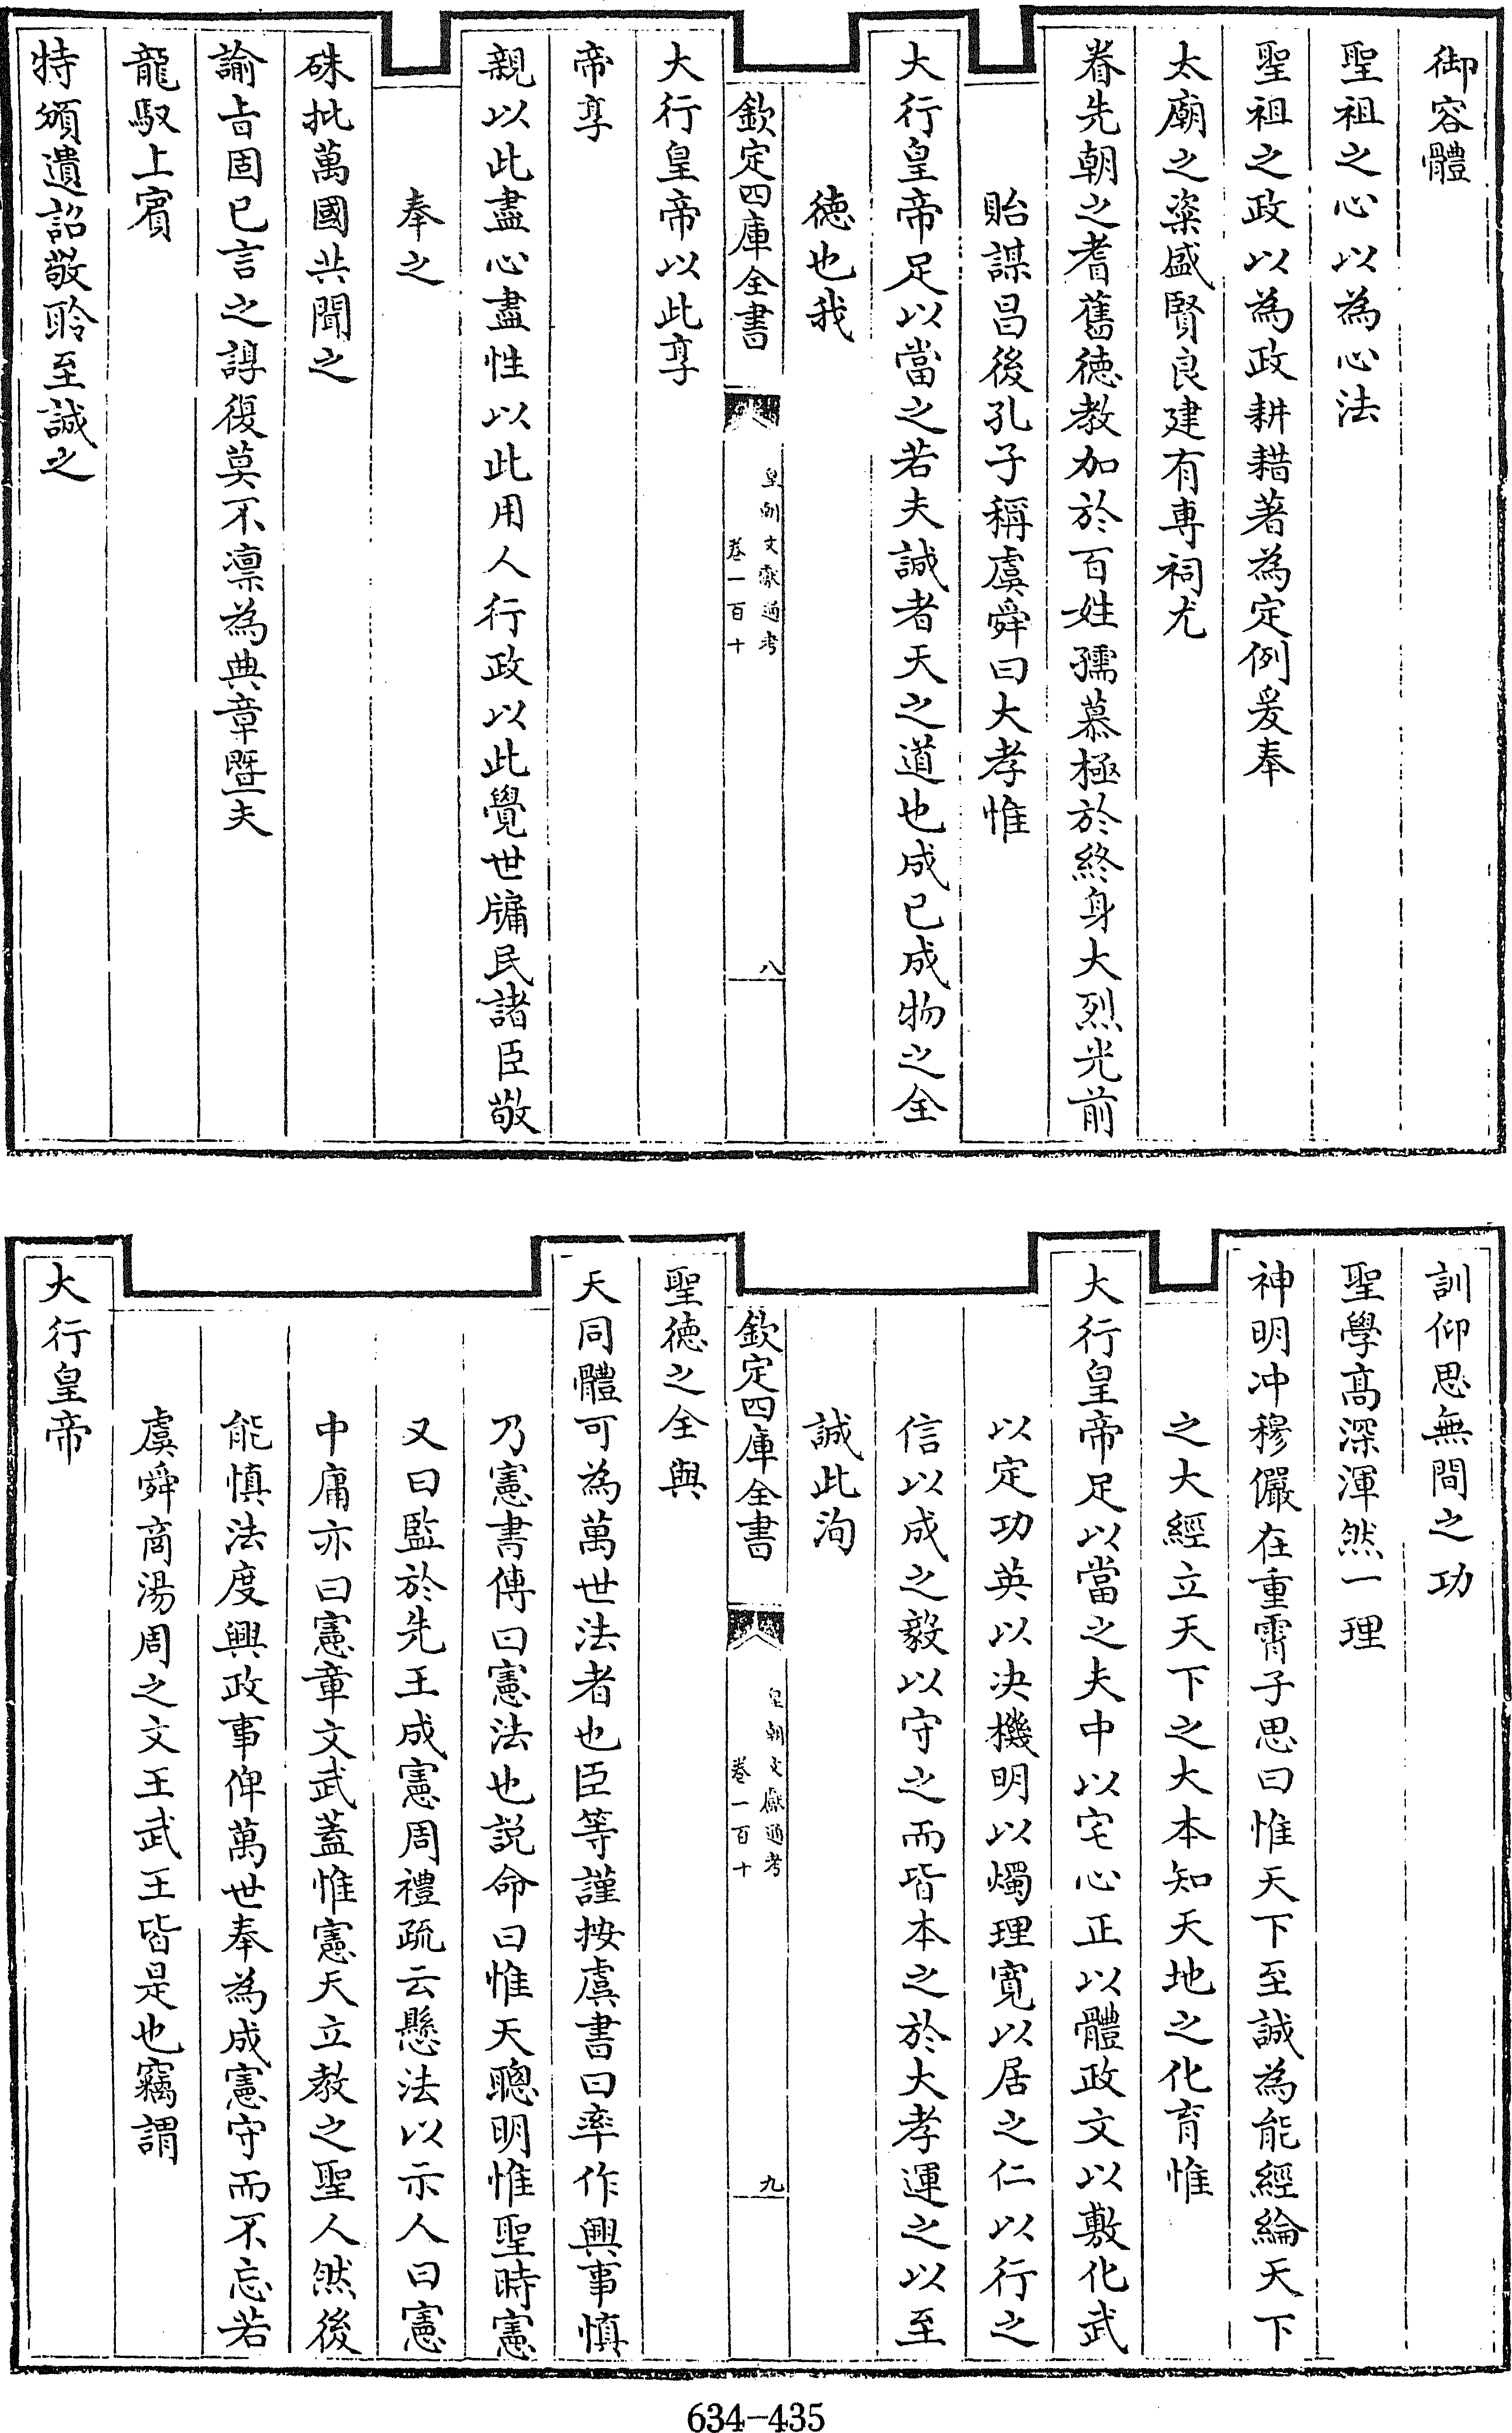 御容體
聖祖之心以為心法
聖祖之政以為政耕耤著為定例爰奉
太廟之粢盛賢良建有專祠尤
眷先朝之耆舊徳教加於百姓孺慕極於終身大烈光前
貽謀昌後孔子稱虞舜曰大孝惟
大行皇帝足以當之若夫誠者天之道也成已成物之全
徳也我
欽定四庫全書
皇朝文獻通考
卷一百十
八
大行皇帝以此享
帝享
親以此盡心盡性以此用人行政以此覺世牖民諸臣敬
奉之
硃批萬國共聞之
諭㫖固已言之諄復莫不凛為典章曁夫
龍馭上賓
特頒遺詔敬聆至誠之
訓仰思無間之功
聖學髙深渾然一理
神明冲穆儼在重霄子思曰惟天下至誠為能經綸天下
之大經立天下之大本知天地之化育惟
大行皇帝足以當之夫中以宅心正以體政文以敷化武
以定功英以决機明以燭理寛以居之仁以行之
信以成之毅以守之而皆本之於大孝運之以至
誠此洵
欽定四庫全書
皇朝文獻通考
卷一百十
九
聖徳之全與
天同體可為萬世法者也臣等謹按虞書曰率作興事慎
乃憲書傳曰憲法也説命曰惟天聰明惟聖時憲
又曰監於先王成憲周禮疏云懸法以示人曰憲
中庸亦曰憲章文武蓋惟憲天立教之聖人然後
能慎法度興政事俾萬世奉為成憲守而不忘若
虞舜商湯周之文王武王皆是也竊謂
大行皇帝
634-435